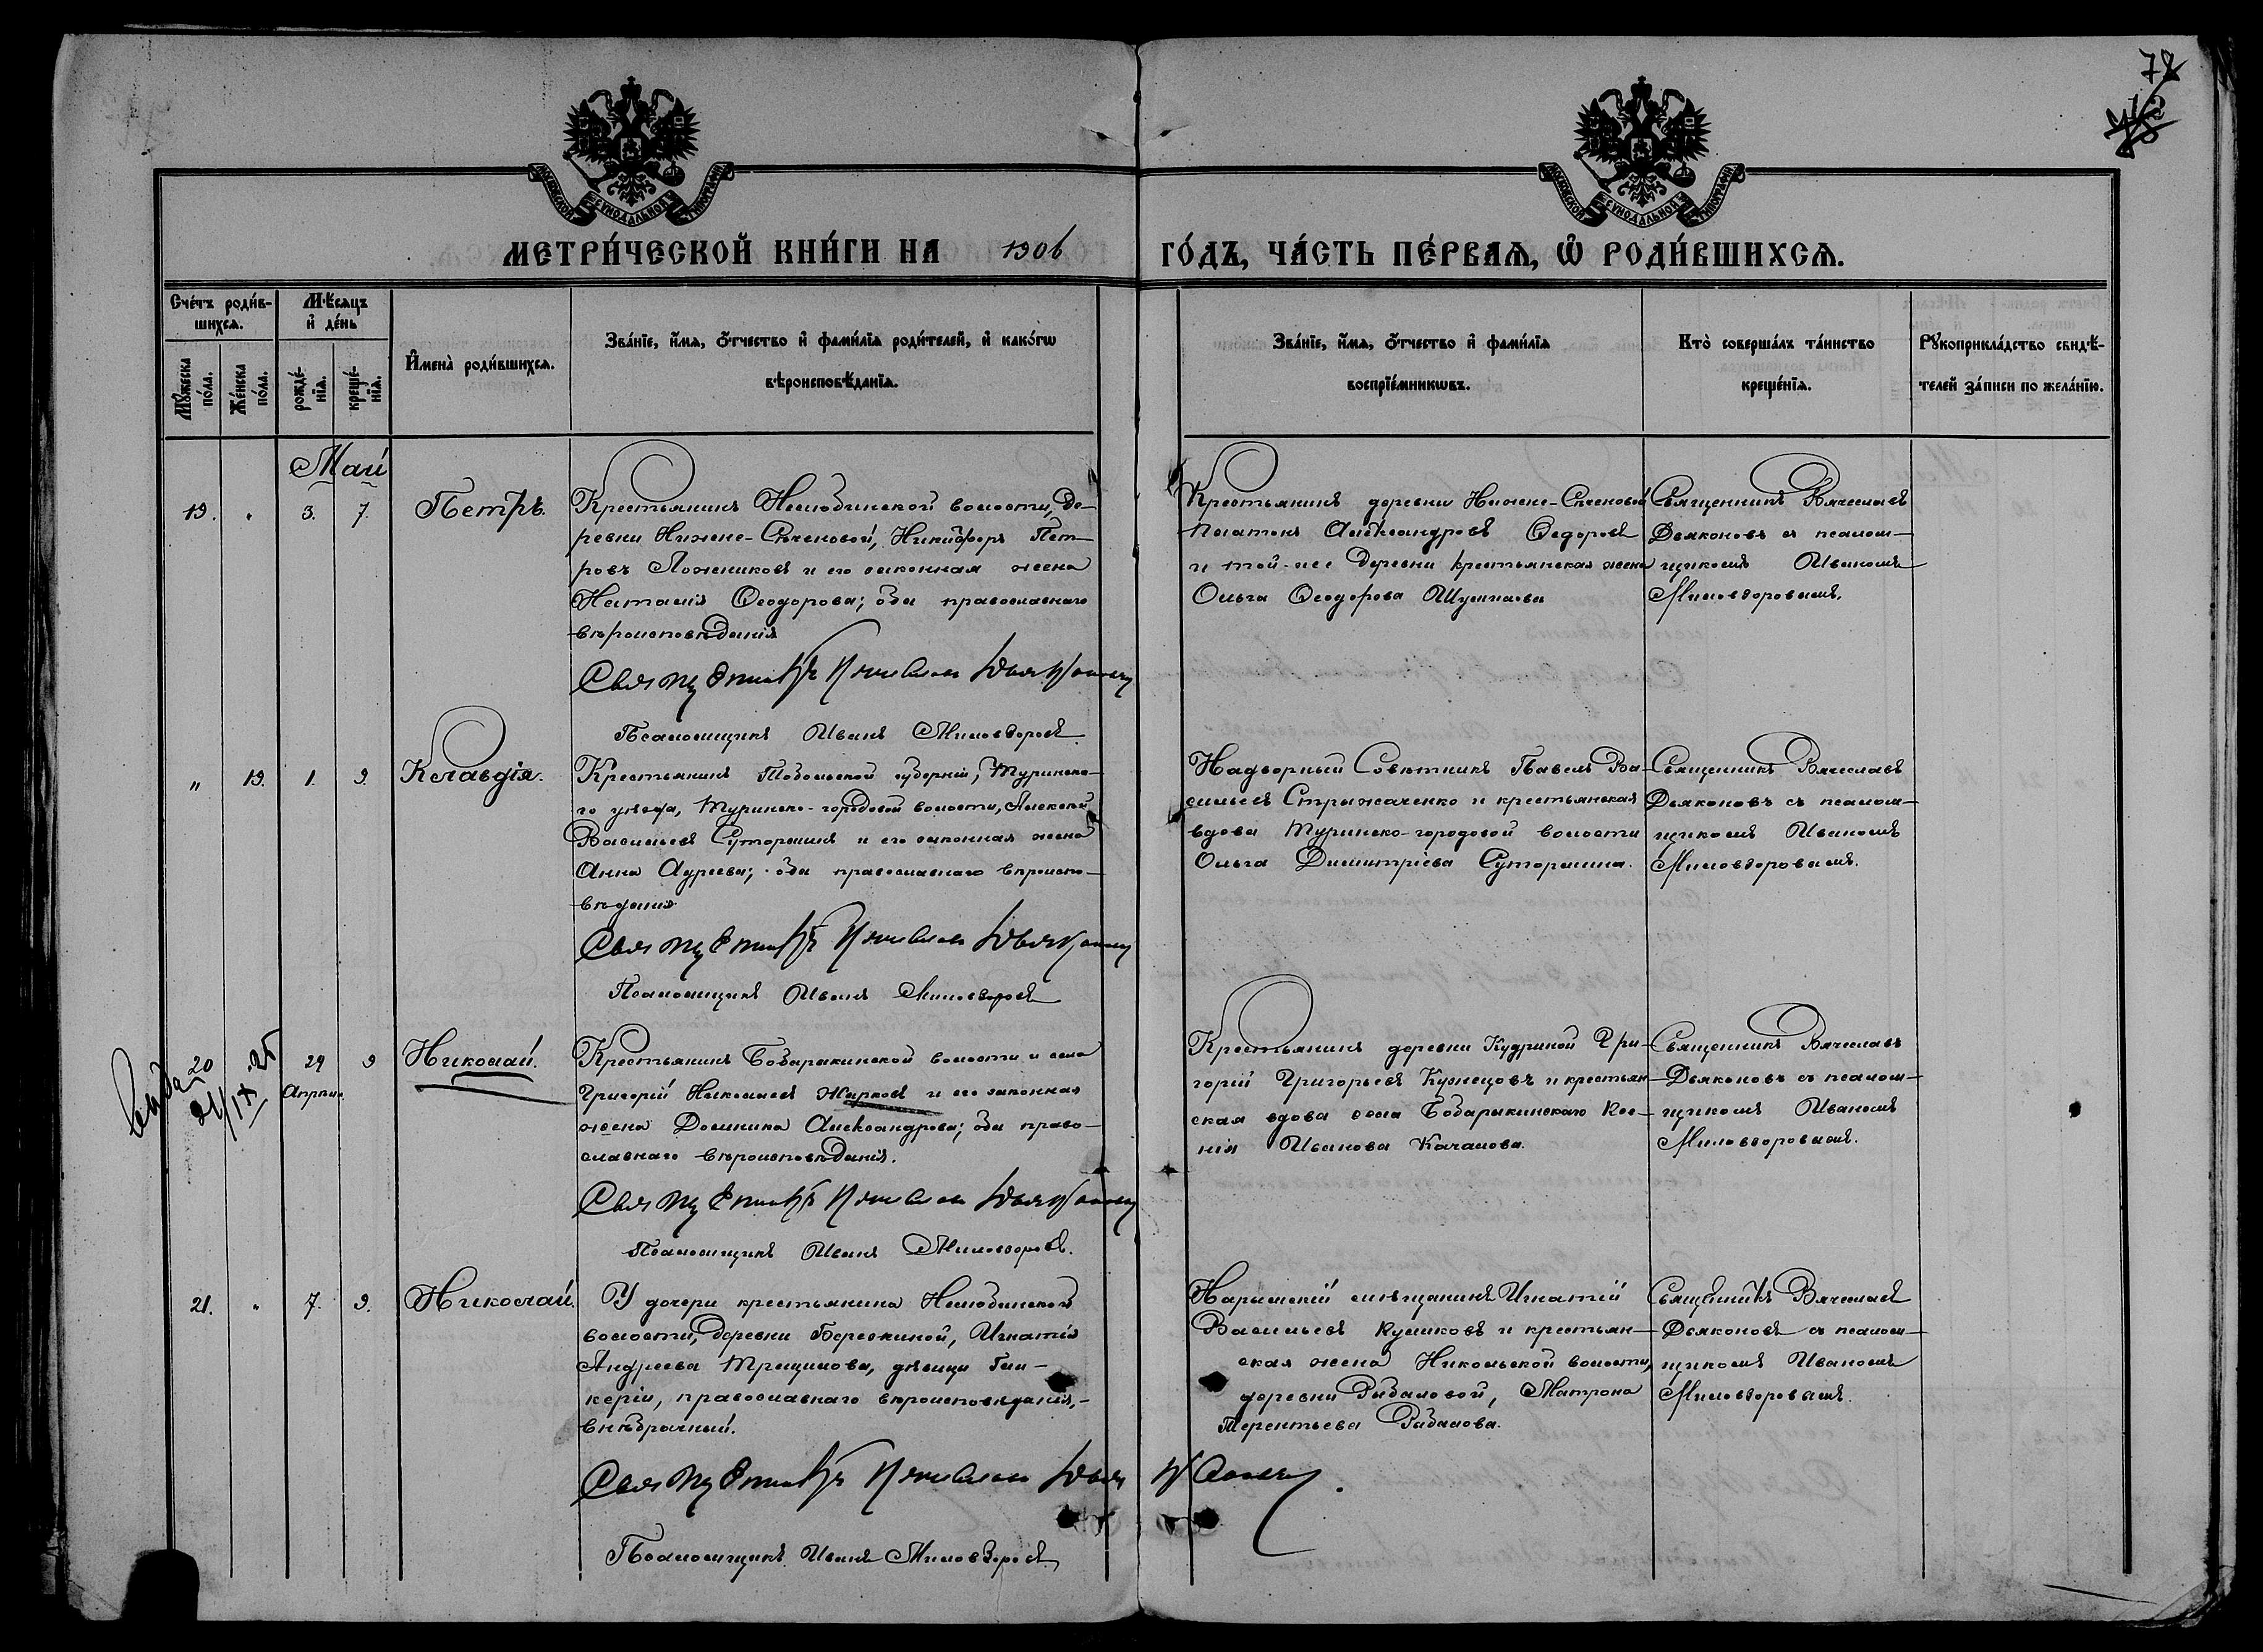 78
МОСКОВСКОЙ СѴНОДАЛЬНОЙ ТИПОГРАФІИ
МОСКОВСКОЙ СѴНОДАЛЬНОЙ ТИПОГРАФІИ
МЕТРИ́ЧЕСКОЙ КНИ́ГИ НА 1906 ГО́ДЪ, ЧА́СТЬ ПЕ́РВАѦ, Ѡ҆ РОДИ́ВШИХСѦ.
Сче́тъ роди́в-
шихсѧ.
Мѣ́сѧцъ
и҆ де́нь
Мꙋ́жеска по́ла.
Же́нска по́ла.
рожде́-
нїѧ.
креще́-
нїѧ.
И҆мена̀ роди́вшихсѧ.
Зва́нїе, и҆́мѧ, ѻ҆́тчество и҆ фами́лїѧ роди́телей, и҆ како́гѡ
вѣроисповѣ́данїѧ.
Зва́нїе, и҆́мѧ, ѻ҆́тчество и҆ фами́лїѧ
воспрїе́мникѡвъ.
Кто̀ соверша́лъ та́инство
креще́нїѧ.
Рꙋкоприкла́дство свидѣ́-
телей за́писи по жела́нїю.
Май
19. " 3. 7. Петръ.
Крестьянинъ Нелюбинской волости, де-
ревни Нижне-Сѣченовой, Никифоръ Пет-
ровъ Ложниковъ и его законная жена
Наталія Ѳеодорова; оба православнаго
вѣроисповѣданія
Священникъ Вячеславъ Дьяконовъ
Псаломщикъ Иванъ Миловзоровъ
Крестьянинъ деревни Нижне-Сѣченовой
Платонъ Александровъ Ѳедоровъ
и той-же деревни крестьянская жена
Ольга Ѳеодорова
Священникъ Вячеславъ
Дьяконовъ съ псалом-
щикомъ Иваномъ
Миловзоровымъ.
" 19. 1. 9. Клавдія.
Крестьянинъ Тобольской губерніи, Туринска-
го уѣзда, Туринско-городовой волости, Алексѣй
Васильевъ Сутормин и его законная жена
Анна; оба православнаго вѣроиспо-
вѣданія
Священникъ Вячеславъ Дьяконовъ
Псаломщикъ Иванъ Миловзоровъ
Надворный Совѣтникъ Павелъ Ва-
сильевъ Стрижаченко и крестьянская
вдова Туринско-городовой волости
Ольга Димитріева Сутормина.
Священникъ Вячеславъ
Дьяконовъ съ псалом-
щикомъ Иваномъ
Миловзоровымъ.
20 29 9 Николай.
Апрѣля
21/IX 25
Крестьянинъ Бабарыкинской волости и села
Григорій Николаевъ Жарковъ и его законная
жена Домника Александрова; оба право-
славнаго вѣроисповѣданія.
Священникъ Вячеславъ Дьяконовъ
Псаломщикъ Иванъ Миловзоровъ.
Крестьянинъ деревни Кудриной Гри-
горій Григорьевъ Кузнецовъ и крестьян-
ская вдова села Бабарыкинскаго Ксе-
нія Иванова Качалова.
Священникъ Вячеславъ
Дьяконовъ съ псалом-
щикомъ Иваномъ
Миловзоровымъ.
21. " 7. 9. Николай.
У дочери крестьянина Нелюбинской
волости, деревни Березкиной, Игнатія
Андреева Трещилова, дѣвицы Гли-
керіи, православнаго вѣроисповѣданія,-
внѣбрачный.
Священникъ Вячеславъ Дьяконовъ.
Псаломщикъ Иванъ Миловзоровъ
Нарымскій мѣщанинъ Игнатій
Васильевъ Куликовъ и крестьян-
ская жена Никольской волости,
деревни Рыбаловой, Матрона
Терентьева Рыбалова.
Священникъ Вячеславъ
Дьяконовъ съ псалом-
щикомъ Иваномъ
Миловзоровымъ.